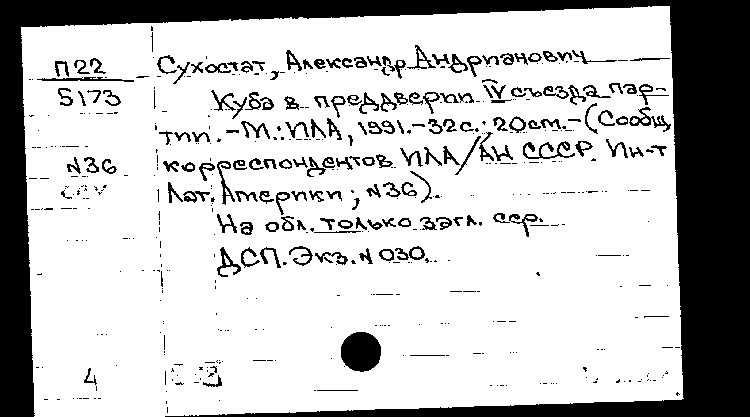 П22
5173
N36
Сухостат, Александр Андрианович
Куба в преддверии IV съезда пар-
тии. - М.: ИЛА, 1991. - 32с.; 20см. - (Сообщ.
корреспондентов ИЛА/АН СССР. Ин-т
Лат. Америки; N36).
На обл. только загл. сер.
ДСП. Экз. N 030.
4